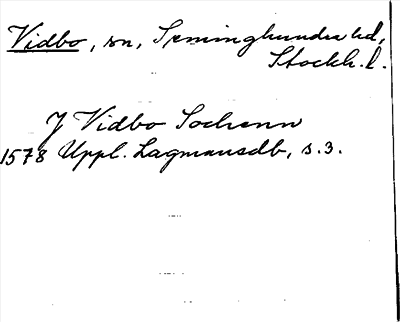 Vidbo, sn, Seminghundra hd,
Stockh. l.
J Vidbo Sochenn
1578 Uppl. Lagmansdb, s. 3.